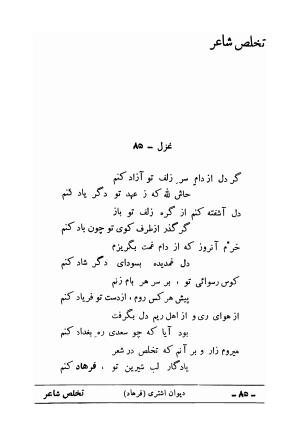 تخلص شاعر
غزل - ۸۵
گر دل از دام سر زلف تو آزاد کنم
حاش لله که ز عهد تو دگر یاد کنم
دل آشفته کنم از گره زلف تو باز
گر گذر از طرف کوی تو چون باد کنم
خرم آنروز که از دام غمت بگریزم
دل غمدیده بسودای دگر شاد کنم
کوس رسوائی تو ، بر سر هر بام زنم
پیش هر کس روم ، از دست تو فریاد کنم
از هوای ری و از اهل ریم دل بگرفت
بود آیا که چو سعدی ره بغداد کنم
میروم زار و بر آنم که تخلص در شعر
یادگار لب شیرین تو ، فرهاد کنم
تخلص شاعر دیوان اشتری (فرهاد) - ۸۵ -